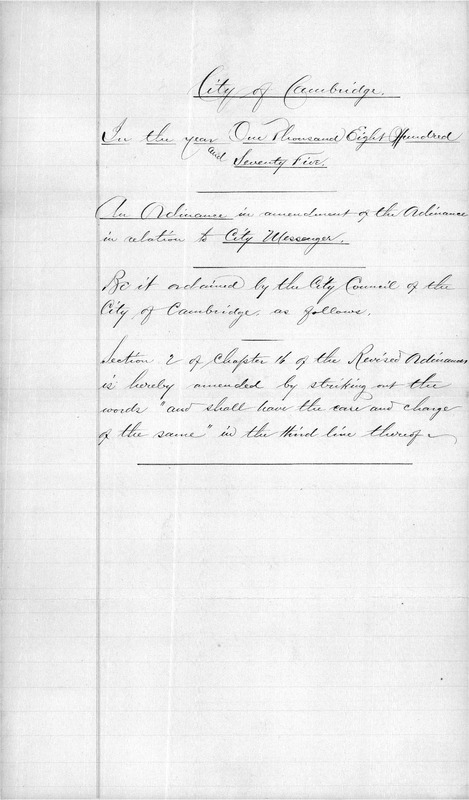 City of Cambridge.
In the year One Thousand Eight Hundred
and Seventy Five.
An Ordinance in amendment of the Ordinance
in relation to City Messenger.
Be it ordained by the City Council of the
City of Cambridge, as follows.
Section 2 of Chapter 16 of the Revised Ordinances
is hereby amended by striking out the
words "and shall have the care and charge
of the same" in the third line thereof.